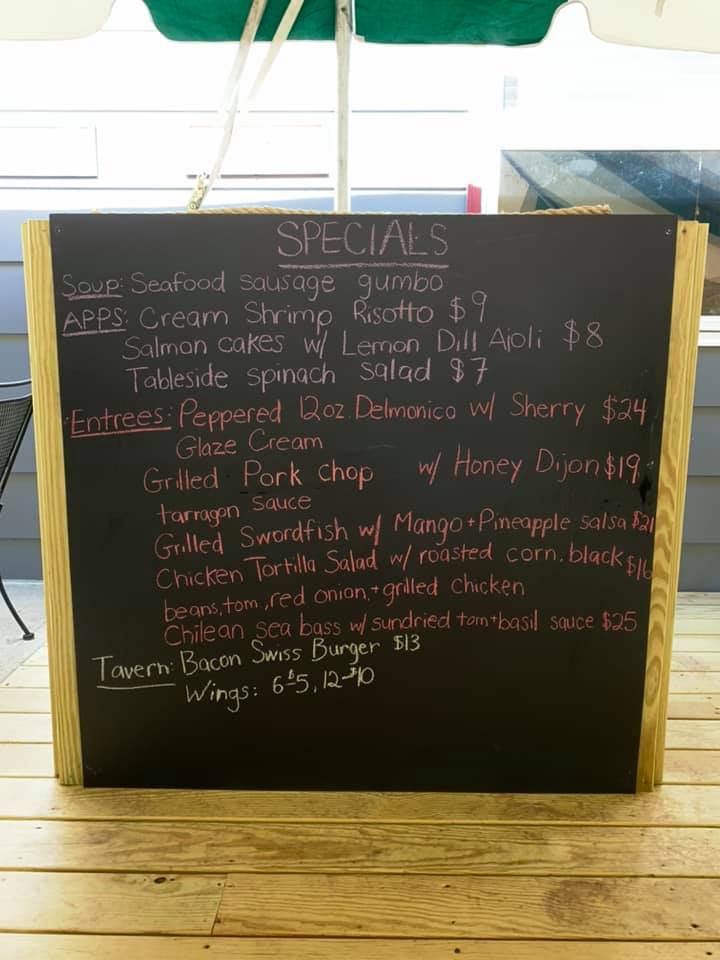 SPECIALS
Soup: Seafood sausage gumbo
APPS: Cream Shrimp Risotto $9
Salmon cakes w/ Lemon Dill Aioli $8
Tableside spinach salad $7
Entrees: Peppered 12oz. Delmonico w/ Sherry $24
Glaze Cream
Grilled Pork chop w/ Honey Dijon $19
tarragon sauce
Grilled Swordfish w/ Mango + Pineapple salsa $21
Chicken Tortilla Salad w/ roasted corn, black $16
beans, tom, red onion, + grilled chicken
Chilean sea bass w/ sundried tom + basil sauce $25
Tavern: Bacon Swiss Burger $13
Wings: 6-$5, 12-$10